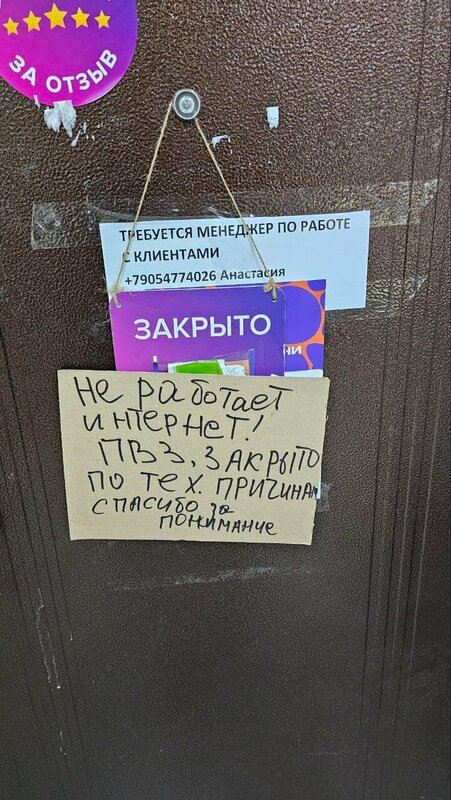 ЗА ОТЗЫВ
ТРЕБУЕТСЯ МЕНЕДЖЕР ПО РАБОТЕ
С КЛИЕНТАМИ
+79054774026 Анастасия
ЗАКРЫТО
чи
не работает
интернет!
ПВЗ, ЗАКРЫТО
по тех. ПРИЧИНАМ
СПАСИБО за
понимание